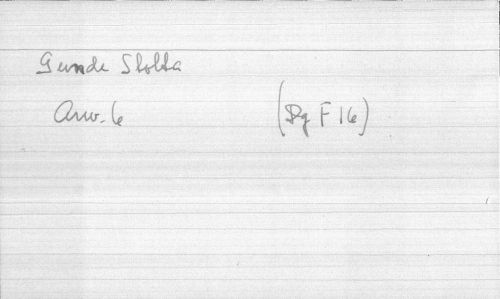 Gunde Stolta
Anv. 6 (Dg F 16)